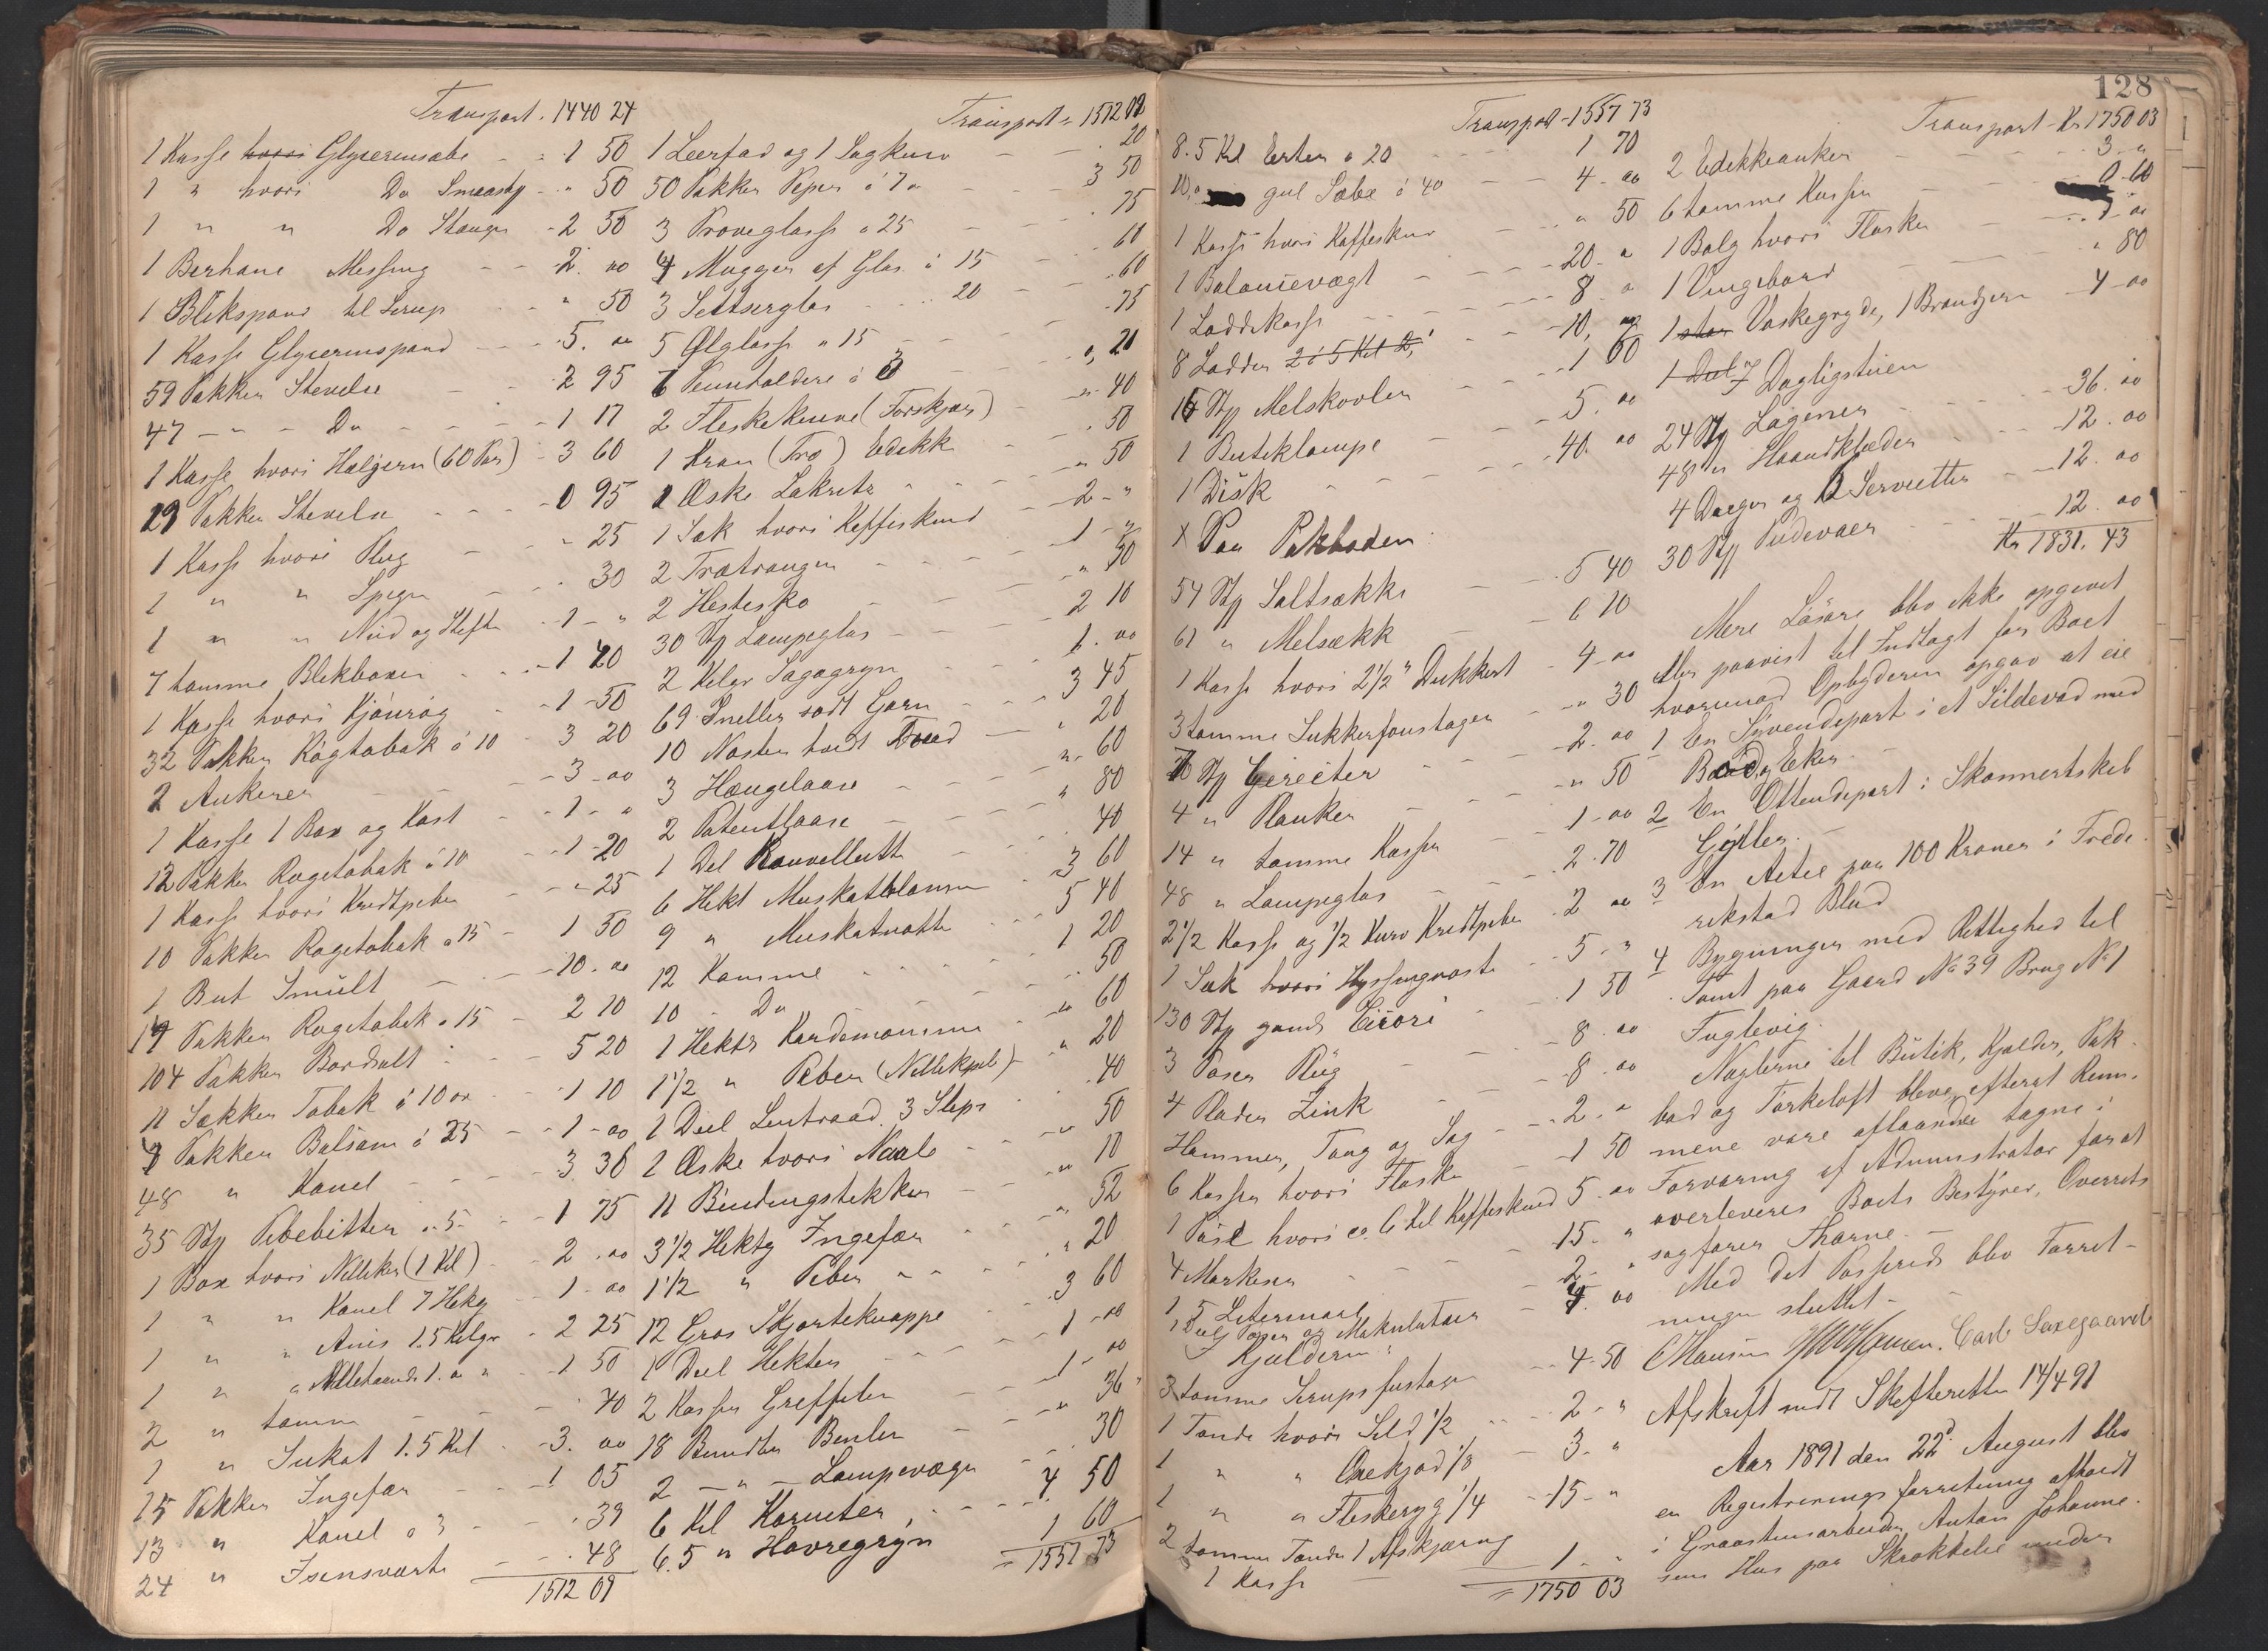 Transport. 1440 24
1 Kasse hvori Glycerinsæbe 1 50
1 " hvori Do Smaasty " 50
1 " " Do Stanger 2 50
1 Berhane Messing 2. 00
1 Blikspand til Sirup " 50
1 Kasse Glycerinspand 5. 00
59 Pakker Stivelse 2 95
47 - " - Do 1 17
1 Kasse hvori Hæljern (60 Par) 3 60
19 Pakker Stivelse 0 95
1 Kasse hvori Plug - 25
1 " " Spiger . 30
1 " " Nid og Stifte 1 - "
7 tomme Blikboxer 1 40
1 Kasse hvori Kjönrög 1 - 50
32 Pakker Rögtobak á 10 3 20
2 Ankerer 3 - 00
1 Kasse 1 Box og Kost 1 - "
12 Pakker Rögetobak á 10 1 - 20
1 Kasse hvori Kridtpiber " - 25
10 Pakker Rogetobak á 15 1 50
1 But Smult 10. 00
14 Pakker Rogetobak á 15 2 10
104 Pakker Bordsalt 5 20
11 Sækker Tobak á 10 ör 1 10
4 Pakker Balsam á 25 1 - 00
48 " Kanel 3. 36
35 Stg Pibebitter á 5 1 75
1 Box hvori Nelliker (1 Kil) 2. 00
1 " " Kanel 7 Hekg 1. 00
1 " " Anis 1.5 Kilgr 2 25
1 " " 1. 1 50
2 " tomme . 70
1 " Sukat 1.5 Kil 3. 00
15 Pakker Ingefær 1 05
13 " Kanel á 3 . 39
24 " Isensvarte . 48
1512 09
Transport = 1512 09
1 Leerfad og 1 Lagkurv . 20
50 Pakker Peper á 7 3 50
3 Pröveglasse á 25 . 75
4 Mugger af Glas á 15 . 60
3 Seltserglas 20 . 60
5 Ølglasse á 15 . 75
7 Penneholdere á 3 " 21
2 Fleskeknive (Forskjær) " 40
1 Kran (Træ) Edekk . 50
1 Æske Lakrits " 50
1 Sak hvori Kaffiskind 2 - "
2 Trætrauger 1 - "
2 Hestesko " 30
30 Stg Lampeglas 2 10
2 Kilar Sagogryn 1. 00
69 Sneller sort Garn 3 45
10 Nøster hvidt Traad " 20
3 Hængelaase " 60
2 Patentlaase " 80
1 Del 40
6 Hekt Muskatblomme 3 60
9 " Muskatnøtte 5 40
12 Kamme 1 20
10 - Do . 50
1 Hekts Kardemomme " 60
1 1/2 " Peber (Nellikpeb) " 20
1 Deel Lintraad 3 Slips . 40
1 Æske hvori Naale " 50
11 Bindingstikker " 10
3 1/2 Hektg Ingefær " 52
1 1/2 " Peber " 20
12 Gros Skjorteknappe 3 60
1 Deel Hekter 1 - 00
2 Kasser Greffeler 1 - 00
18 Bundter Bendler " 36
2 - " - Lampevæger . 30
6 Kil Korinter 4 50
6.5 " Havregryn 1 60
= 1557 73
128
Transport - 1557 73
8.5 Kil Erter á 20 1 70
10. " gul Sæbe á 40 4. 00
1 Kasse hvori Kaffeskind " 50
1 Balancevægt 20. "
1 Loddekasse 8. "
8 Lodder 2 á 5 Kil 10,
16 Stg Melskovler 1 60
1 Butiklampe 5. 00
1 Disk 40. 00
X Paa Pakboden:
54 Stg Saltsække 5 40
61 " Melsækk 6 10
1 Kasse hvori 2 1/2" Dukkert 4 - 00
3 tomme Sukkerfoustager " 30
70 Stg 2. 00
4 " Planker " 50
14 " tomme Kasser 1 - 00
48 " Lampeglas 2. 70
2 1/2 Kasse og 1/2 Kurv Kridtpiber 2 00
1 Sæk hvori 5 - "
130 Stg gml Cicori 1 50
3 Poser Plüg 8. 00
4 Plader Zink 8. 00
Hammer, Tang og Sag 2. "
6 Kasser hvori Flaske 1 50
1 Pose hvori ca 6 Kil Kaffeskind 5. 00
4 Markiser 15. "
1 5 Litermaal 2 - "
1 Deel Poser og Makulatur 4. 00
I Kjælderen:
3 tomme Sirupsfustager 4. 50
1 Tønde hvori Sild 1/2 2 - "
1 " " Oxekjød 1/3 3. "
1 " " Fleskeryg 1/4 15 - "
2 tomme Tønder 1 Afskjæring
1 Kasse 1 - "
= 1750 03
Transport - Kr 1750 03
2 Edekkeanker 3. "
6 tomme Kasser 0.60
1 Balg hvori Flasker 1 - 00
1 Vingebord " 80
1 stor Vaskegryde, 1 Brandjern 4 - 00
1 Deel I Dagligstuen
24 Stg Lagener 36. 00
48 " Haandklæder 12. 00
4 Dreger og 12 Servietter 12. 00
30 Stg Pudevaer 12. 00
Kr 1831. 43
Mere Lösöre blev ikke opgivet
eller paavist til Indtagt for Boet
hvorimod Opbyderen opgav at eie
1 En Syvendepart i et Sildevad med
Baad og Eker.
2 En Ottendepart i Skonnertskib
Gÿller.
3 En Actie paa 100 Kroner i Frede-
rikstad Blad
4 Bygninger med Rettighed til
Tomt paa Gaard No 39 Brug No 1
Fuglevig.
Nøglerne til Butik, Kjælder, Pak-
bod og Törkeloft bleve, efterat Rum-
mene vare aflaasede tagne i
Forvaring af Administrator for at
overleveres Boets Bestyrer, Overrets
sagfører Thorne. -
Med det Passerede blev Forret-
ningen sluttet -
CHansen Carl Saxegaard
Afskrift sendt Skifteretten 14/4 91
Aar 1891 den 22d August blev
en Registreringsforretning afholdt
i Graastensarbeider Anton Johanne-
sens Hus paa Skroktelie under